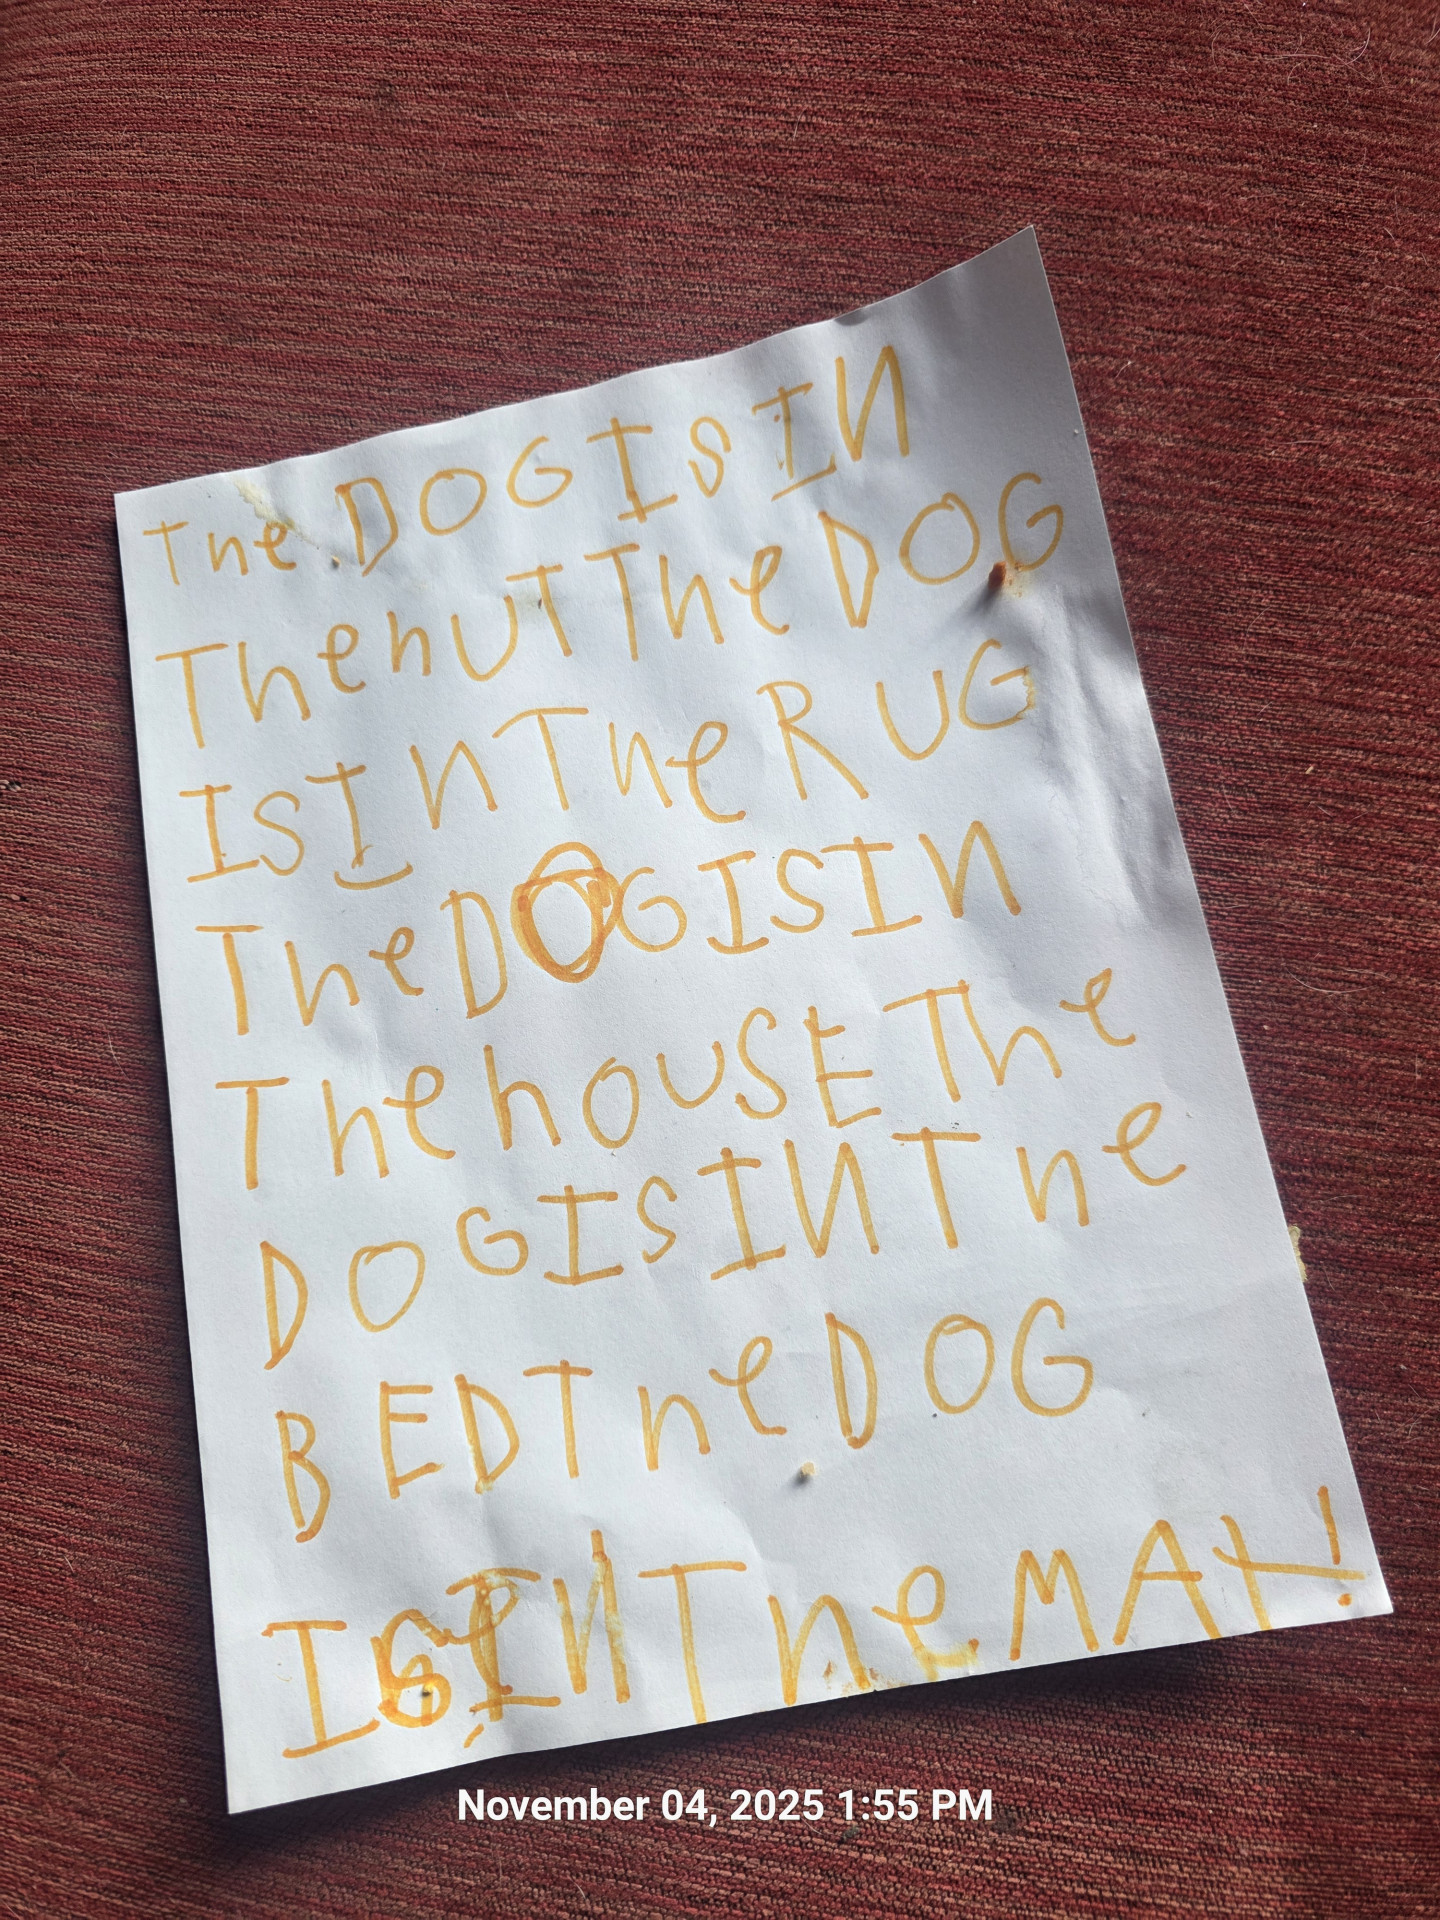 The DOG IS IN
The hUT The DOG
IS IN The RUG
The DOG IS IN
The hOUSE The
DOG IS IN The
BED The DOG
IS IN The MAT!
November 04, 2025 1:55 PM